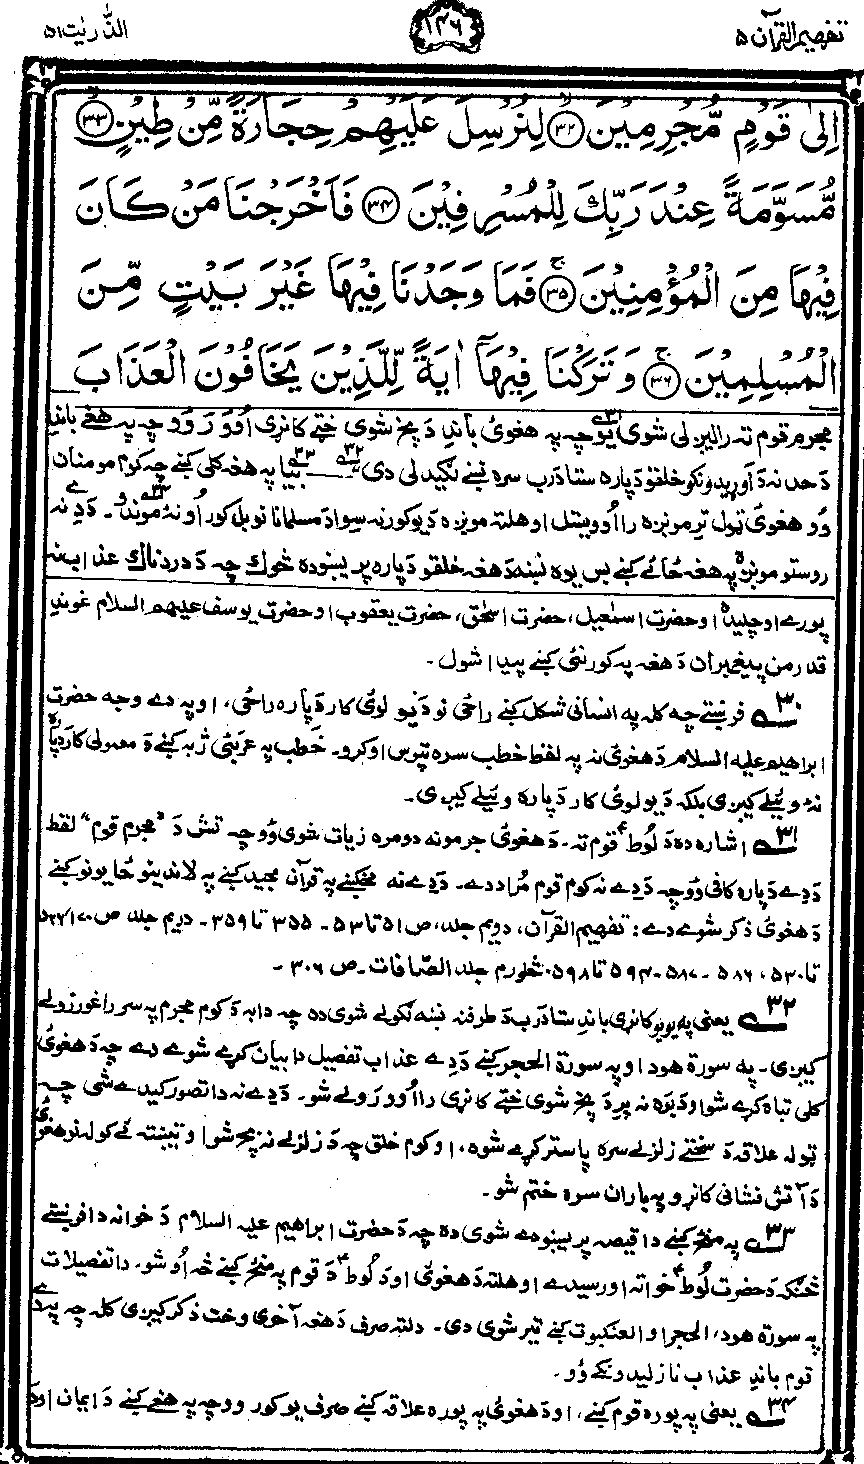 تفهیم القرآن ۵
۱۴۶
الذّٰریٰت ۵۱
اِلٰی قَوۡمٍ مُّجۡرِمِیۡنَ ﴿۳۲﴾ لِنُرۡسِلَ عَلَیۡهِمۡ حِجَارَةً مِّنۡ طِیۡنٍ ﴿۳۳﴾
مُّسَوَّمَةً عِنۡدَ رَبِّكَ لِلۡمُسۡرِفِیۡنَ ﴿۳۴﴾ فَاَخۡرَجۡنَا مَنۡ كَانَ
فِیۡهَا مِنَ الۡمُؤۡمِنِیۡنَ ﴿۳۵﴾ فَمَا وَجَدۡنَا فِیۡهَا غَیۡرَ بَیۡتٍ مِّنَ
الۡمُسۡلِمِیۡنَ ﴿۳۶﴾ وَ تَرَكۡنَا فِیۡهَاۤ اٰیَةً لِّلَّذِیۡنَ یَخَافُوۡنَ الۡعَذَابَ
مجرم قوم ته رالیږلی شوی یو ۳۱ چه په هغوئ باندِ دَ پخ شوی ختے کانړی اُوورَوو چه په هغے باندِ
دَ حد نه دَ آوړیدونکو خلقو دَپاره ستا دَ رب سره نښے لګیدلی دی ۳۲ ۳۳ بیا په هغه کلی کښے چه کوم مومنان
وُو هغوئ ټول ترِ مونږه را اُوویستل او هلته مونږه دَ یو کور نه سوا دَ مسلمانانو بل کور اُو نهٔ موندو ۳۴۔ دَدِ نه
روستو مونږه په هغه ځائے کښے بس یوه نښه دَ هغه خلقو دَپاره پریښوده څوک چه دَ دردناک عذاب نه
یورے اوچلیدہ او حضرت اسمٰعیل، حضرت اسحٰق، حضرت یعقوب او حضرت یوسف علیهم السلام غوندِ
قدرمن پیغمبران دَ هغه په کورنئ کښے پیدا شول۔
۳۰ فرښتے چه کله په انسانی شکل کښے راځی نو دَ ډیر لوئ کار دَپاره راځی، او په دے وجه حضرت
ابراهیم علیه السلام دَ هغوئ نه په لفظ خطب سره تپوس اوکړو۔ خطب په عربئ ژبه کښے دَ معمولی کار دَپاره
نهٔ وئیلے کیږی بلکه دَ یو لوئ کار دَپاره وئیلے کیږی۔
۳۱ اشاره ده دَ لُوطؑ قوم ته۔ دَ هغوئ جرمونه دومره زیات شوی وُو چه تش دَ "مجرم قوم" لفظ
دَدِے دَپاره کافی وُو چه دَدِے نه کوم قوم مُراد دے۔ دَدِے نه مخکښے په قرآن مجید کښے په لاندینو ځایونو کښے
دَ هغوئ ذکر شوے دے: تفهیم القرآن، دویم جلد، ص ۵۱ تا ۵۳۔ ۳۵۵ تا ۳۵۹۔ دریم جلد ص
تا ۵۳۰، ۵۸۶۔ ۵۸۷۔ ۵۹۴ تا ۵۹۸ څلورم جلد الصّافات۔ ص ۳۰۶۔
۳۲ یعنی په یو یو کانړی باندِ ستا دَ رب دَ طرفنه نښه لګولے شوی ده چه دا به دَ کوم مجرم په سر راغورزولے
کیږی۔ په سورة هود او په سورة الحجر کښے دَدِے عذاب تفصیل دا بیان کړے شوے دے چه دَ هغوئ
کلی تباه کړے شو او دَ بَرَه نه پرِ دَ پخ شوی ختے کانړی را اُوورَولے شو۔ دَدِے نه دا تصور کیدے شی چه
ټوله علاقه دَ سختے زلزلے سره پاسته کړے شوه، او کوم خلق چه دَ زلزلے نه بچ شو او تښتیدلے
دَ آتش فشانی کانړو په باران سره ختم شو۔
۳۳ په منځ کښے دا قیصه پریښودے شوی ده چه دَ حضرت ابراهیم علیه السلام دَ خوانه دا فرښتے
څنګه دَ حضرت لُوطؑ خواته اورسیدے او هلته دَ هغوئ او دَ لُوطؑ دَ قوم په منځ کښے څه اُوشو۔ دا تفصیلات
په سورة هود، الحجر او العنکبوت کښے تیر شوی دی۔ دلته صرف دَ هغه آخری وخت ذکر کیږی کله چه په دے
قوم باندِ عذاب نازلیدونکے وُو۔
۳۴ یعنی په پوره قوم کښے، او دَ هغوئ په پوره علاقه کښے صرف یو کور وو چه په هغے کښے دَ ایمان او دَ